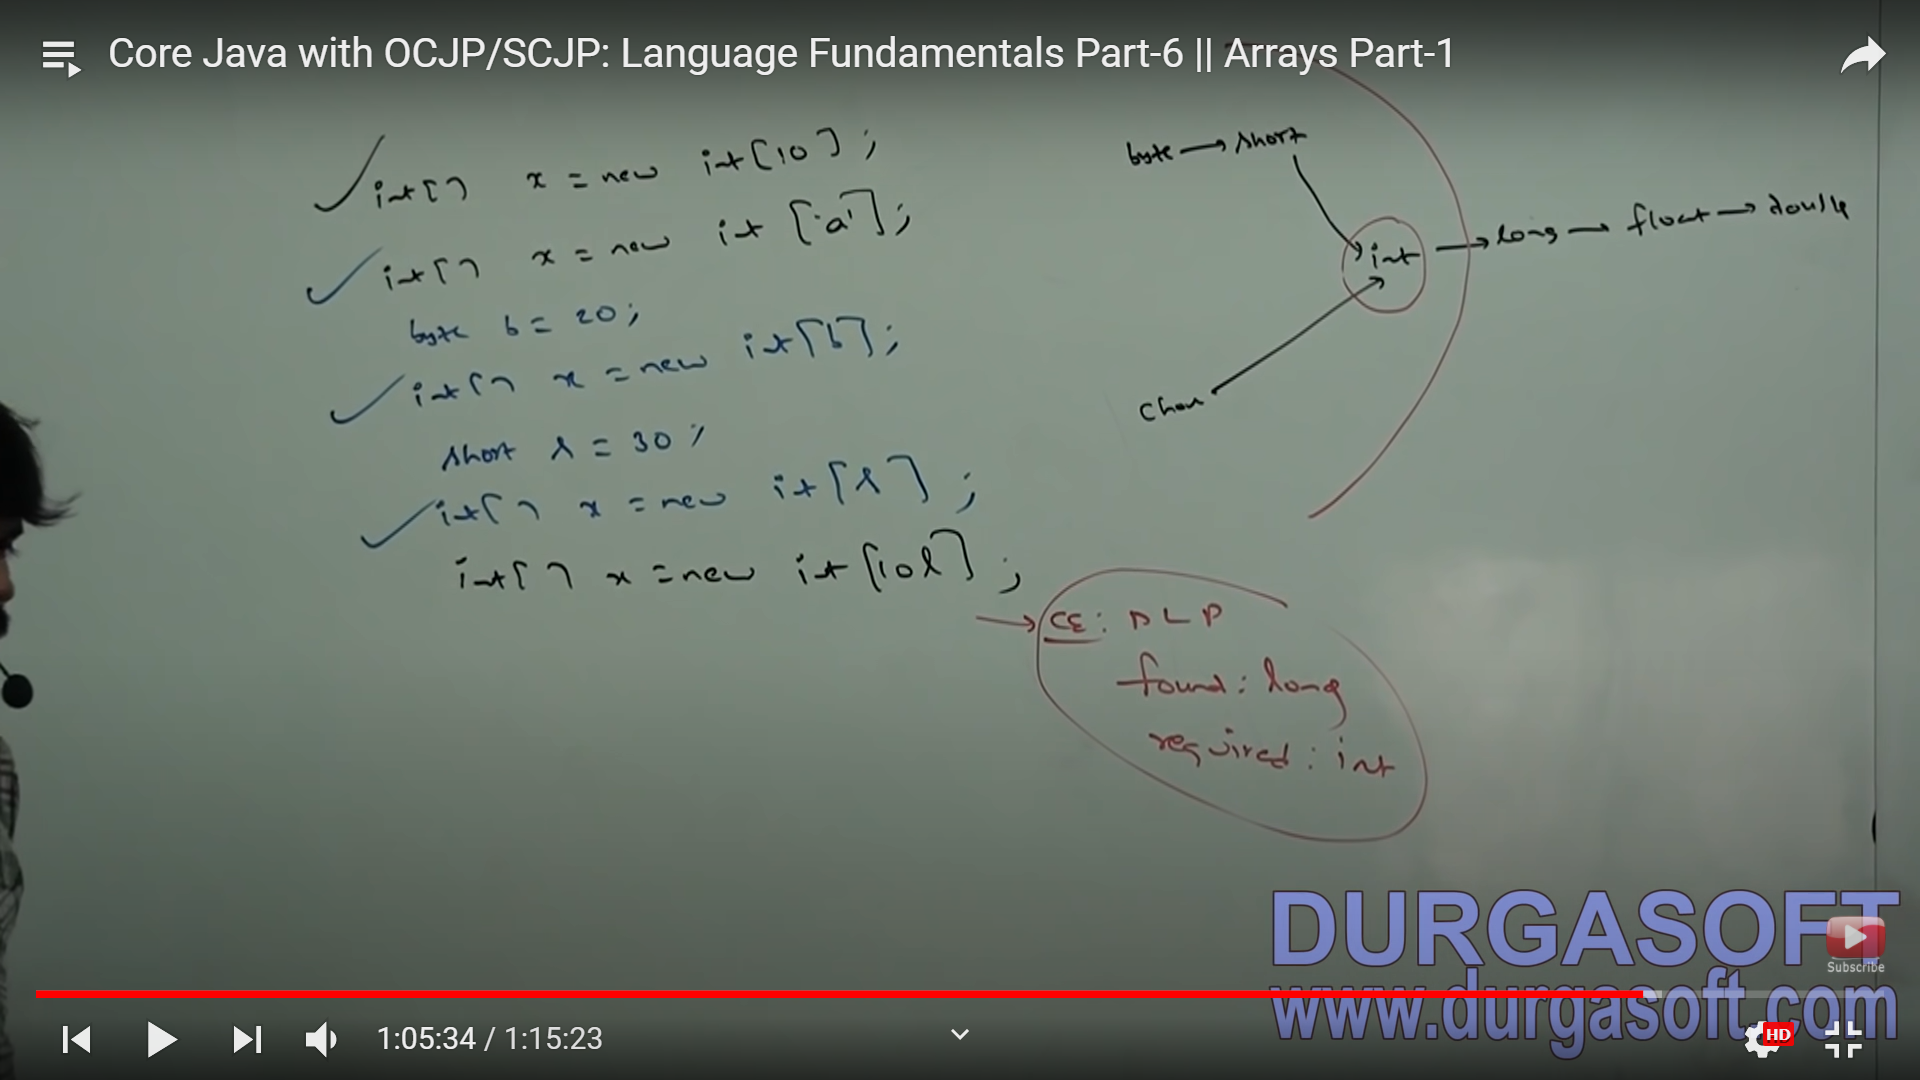 Core Java with OCJP/SCJP: Language Fundamentals Part-6 || Arrays Part-1
int[] x = new int[10];
int[] x = new int['a'];
byte b = 20;
int[] x = new int[b];
short s = 30;
int[] x = new int[s];
int[] x = new int[10l];
byte → short
int → long → float → double
char
CE: PLP
found: long
required: int
DURGASOFT
www.durgasoft.com
Subscribe
1:05:34 / 1:15:23
HD